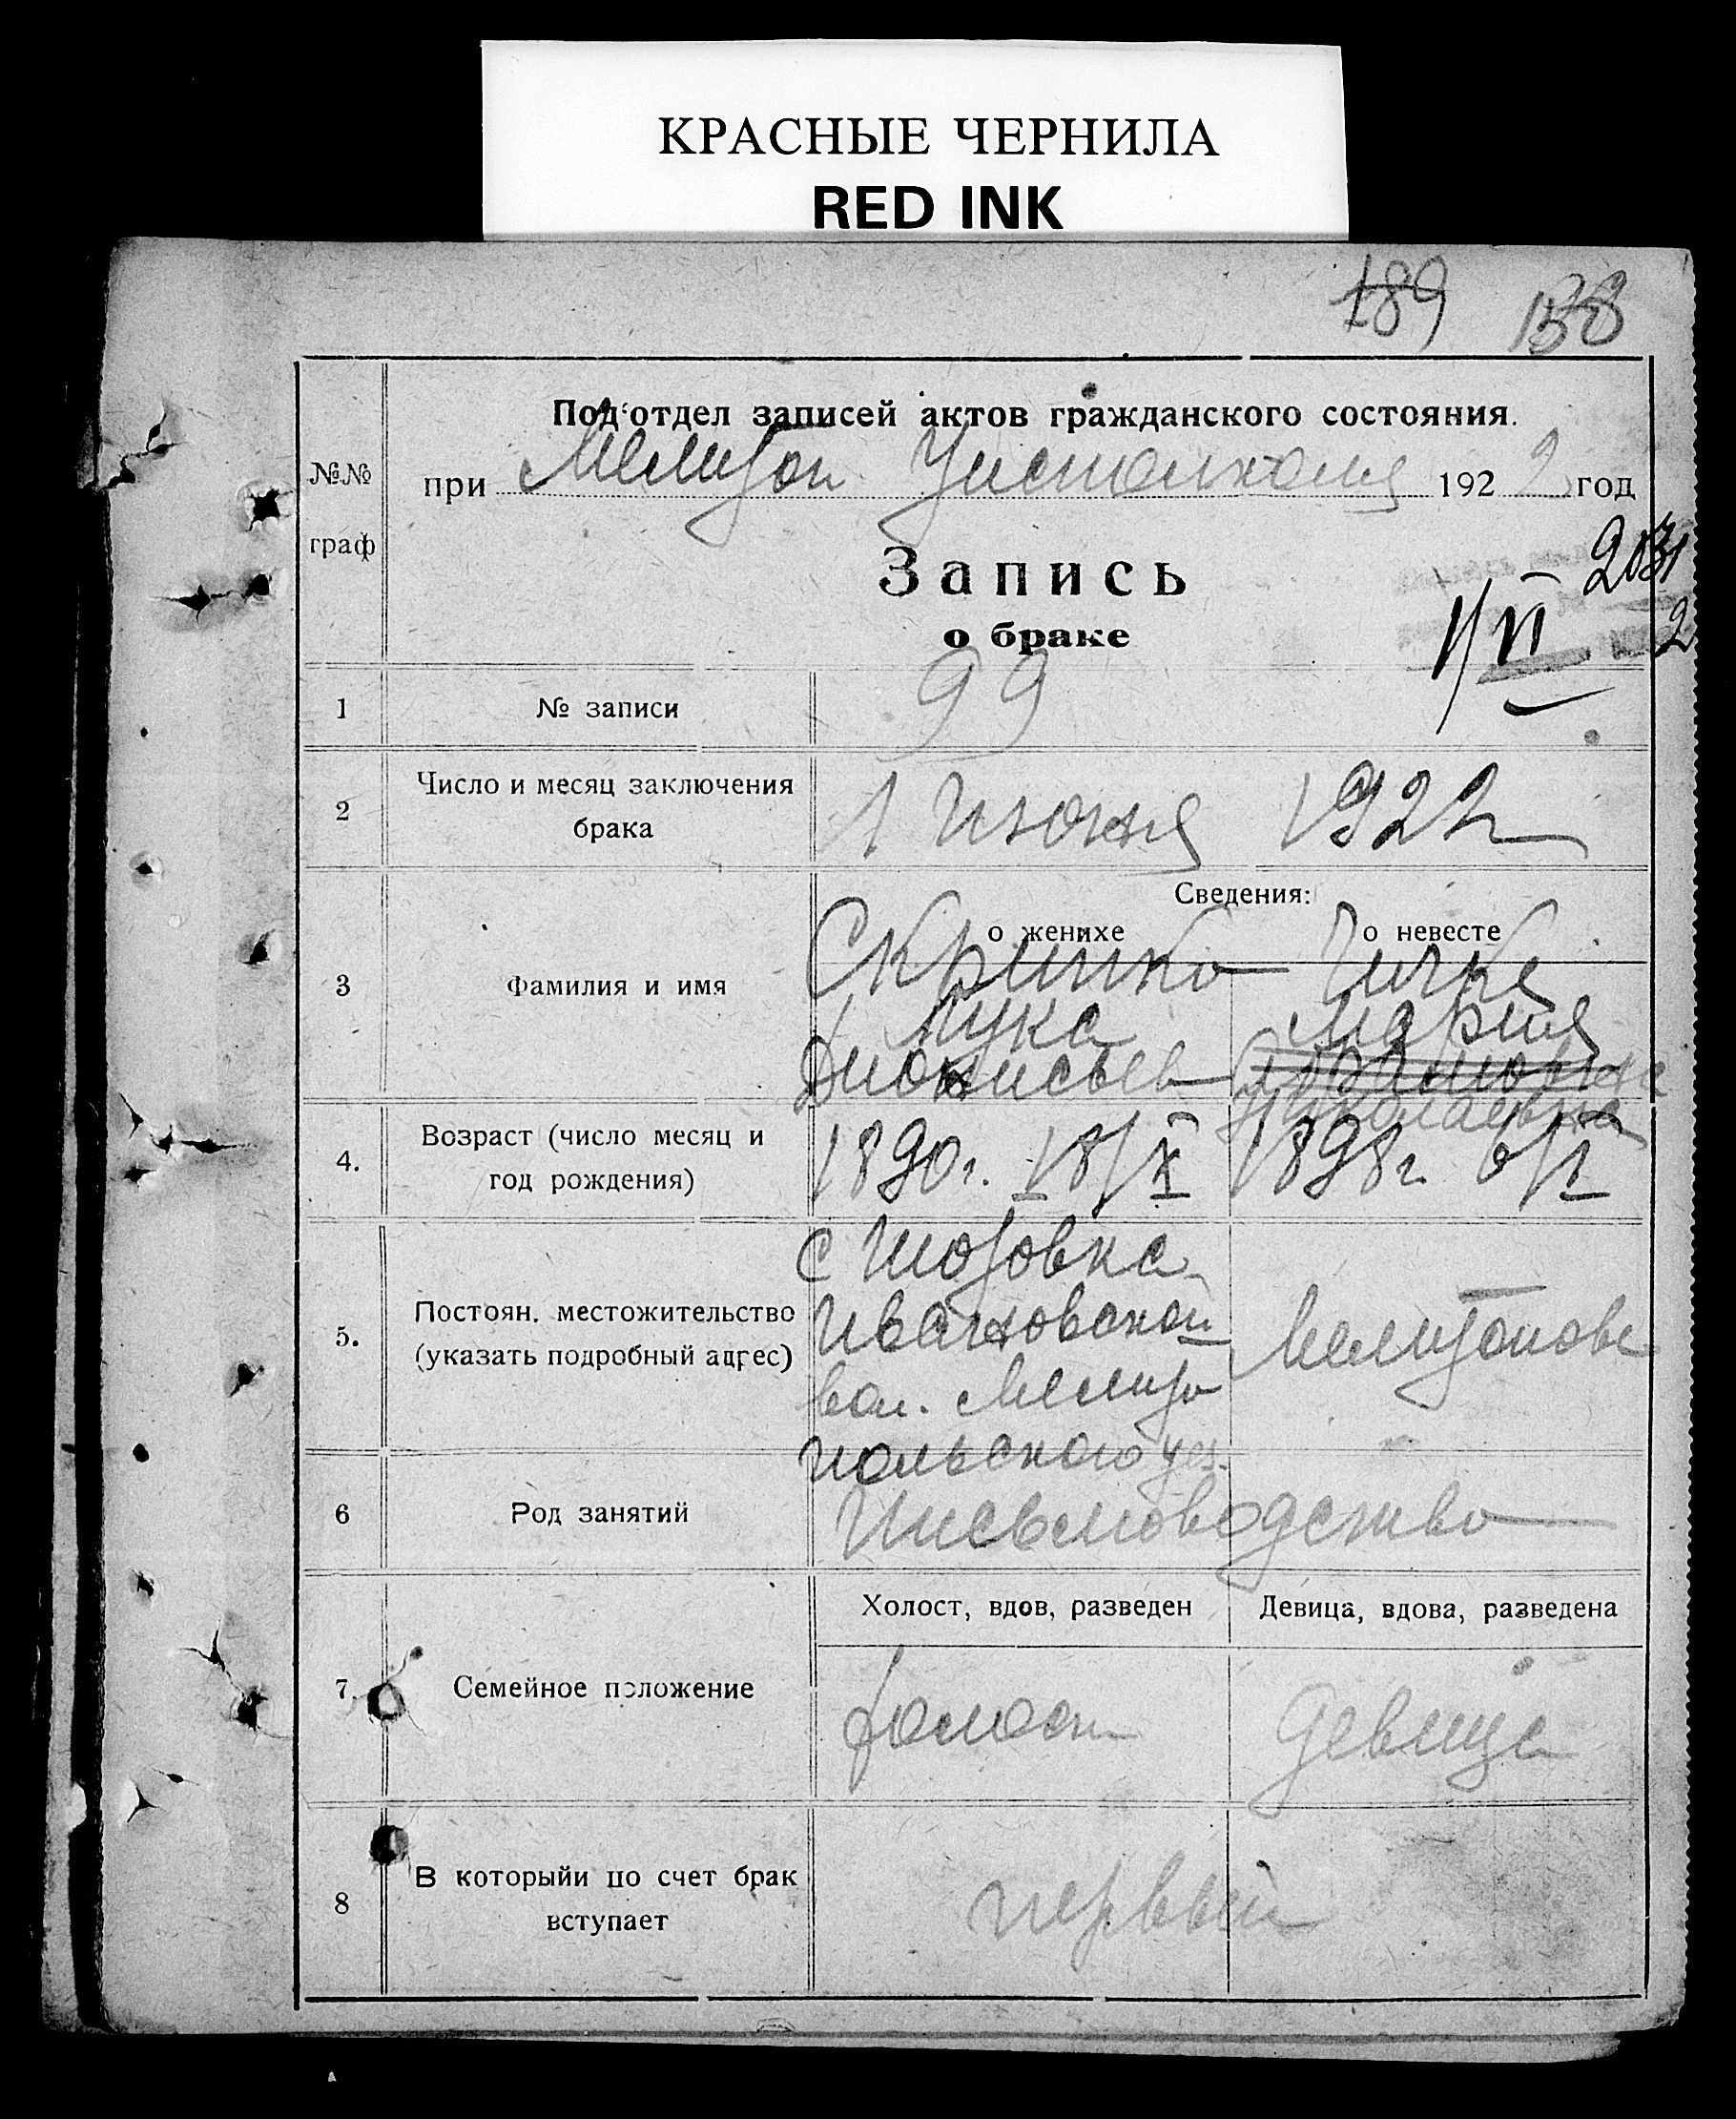 КРАСНЫЕ ЧЕРНИЛА
RED INK
189 138
Под'отдел записей актов гражданского состояния.
№№ граф
при Мелитоп Уисполкоме 1922 год
Запись
о браке
1/VI
1 № записи 99
2 Число и месяц заключения брака 1 Июня 1922
Сведения:
о женихе о невесте
3 Фамилия и имя
Скрипко Чичка
Лука Мария
Дионисьев
Николаевна
4. Возраст (число месяц и год рождения) 1890г. 18/X 1898г. 6/I
5. Постоян. местожительство (указать подробный адрес)
с Шотовка
Ивановской
вол. Мелито
польского уез.
Мелитополь
6 Род занятий Письмоводство
Холост, вдов, разведен Девица, вдова, разведена
7. Семейное положение холост девица
8 В которыйи по счет брак вступает первый